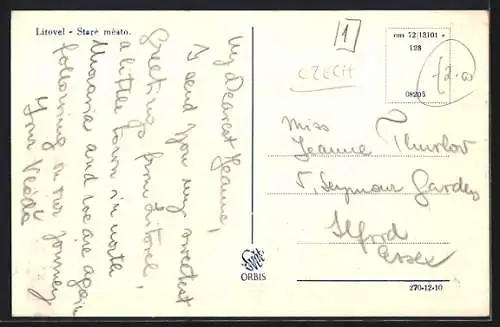 Litovel - Staré město.
My Dearest Jeanne,
I send you my sweetest
Greetings from Litovel,
a little town in north
Moravia and we are again
following on our journey
Your
1
CZECH
nm 72/13101
128
08205
Miss
Jeanne Thurlov
5, Seymour Gardens
Ilford
Essex
ORBIS
270-12-10